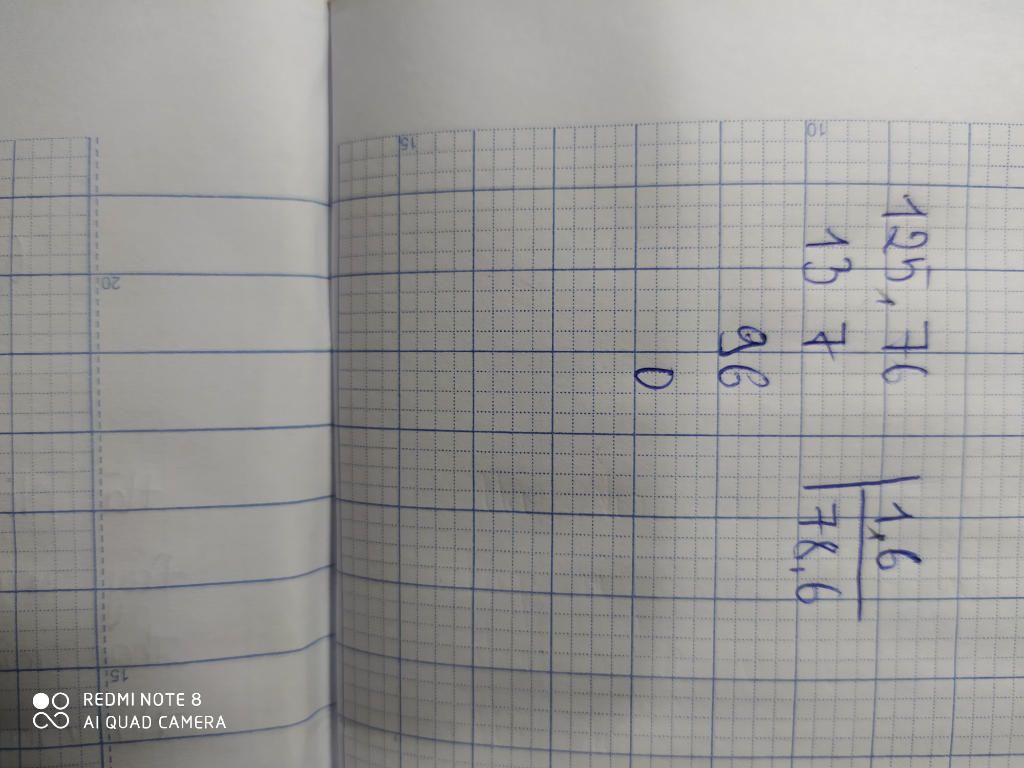 125,76 | 1,6
13 7 78,6
96
0
10
15
20
15
REDMI NOTE 8
AI QUAD CAMERA